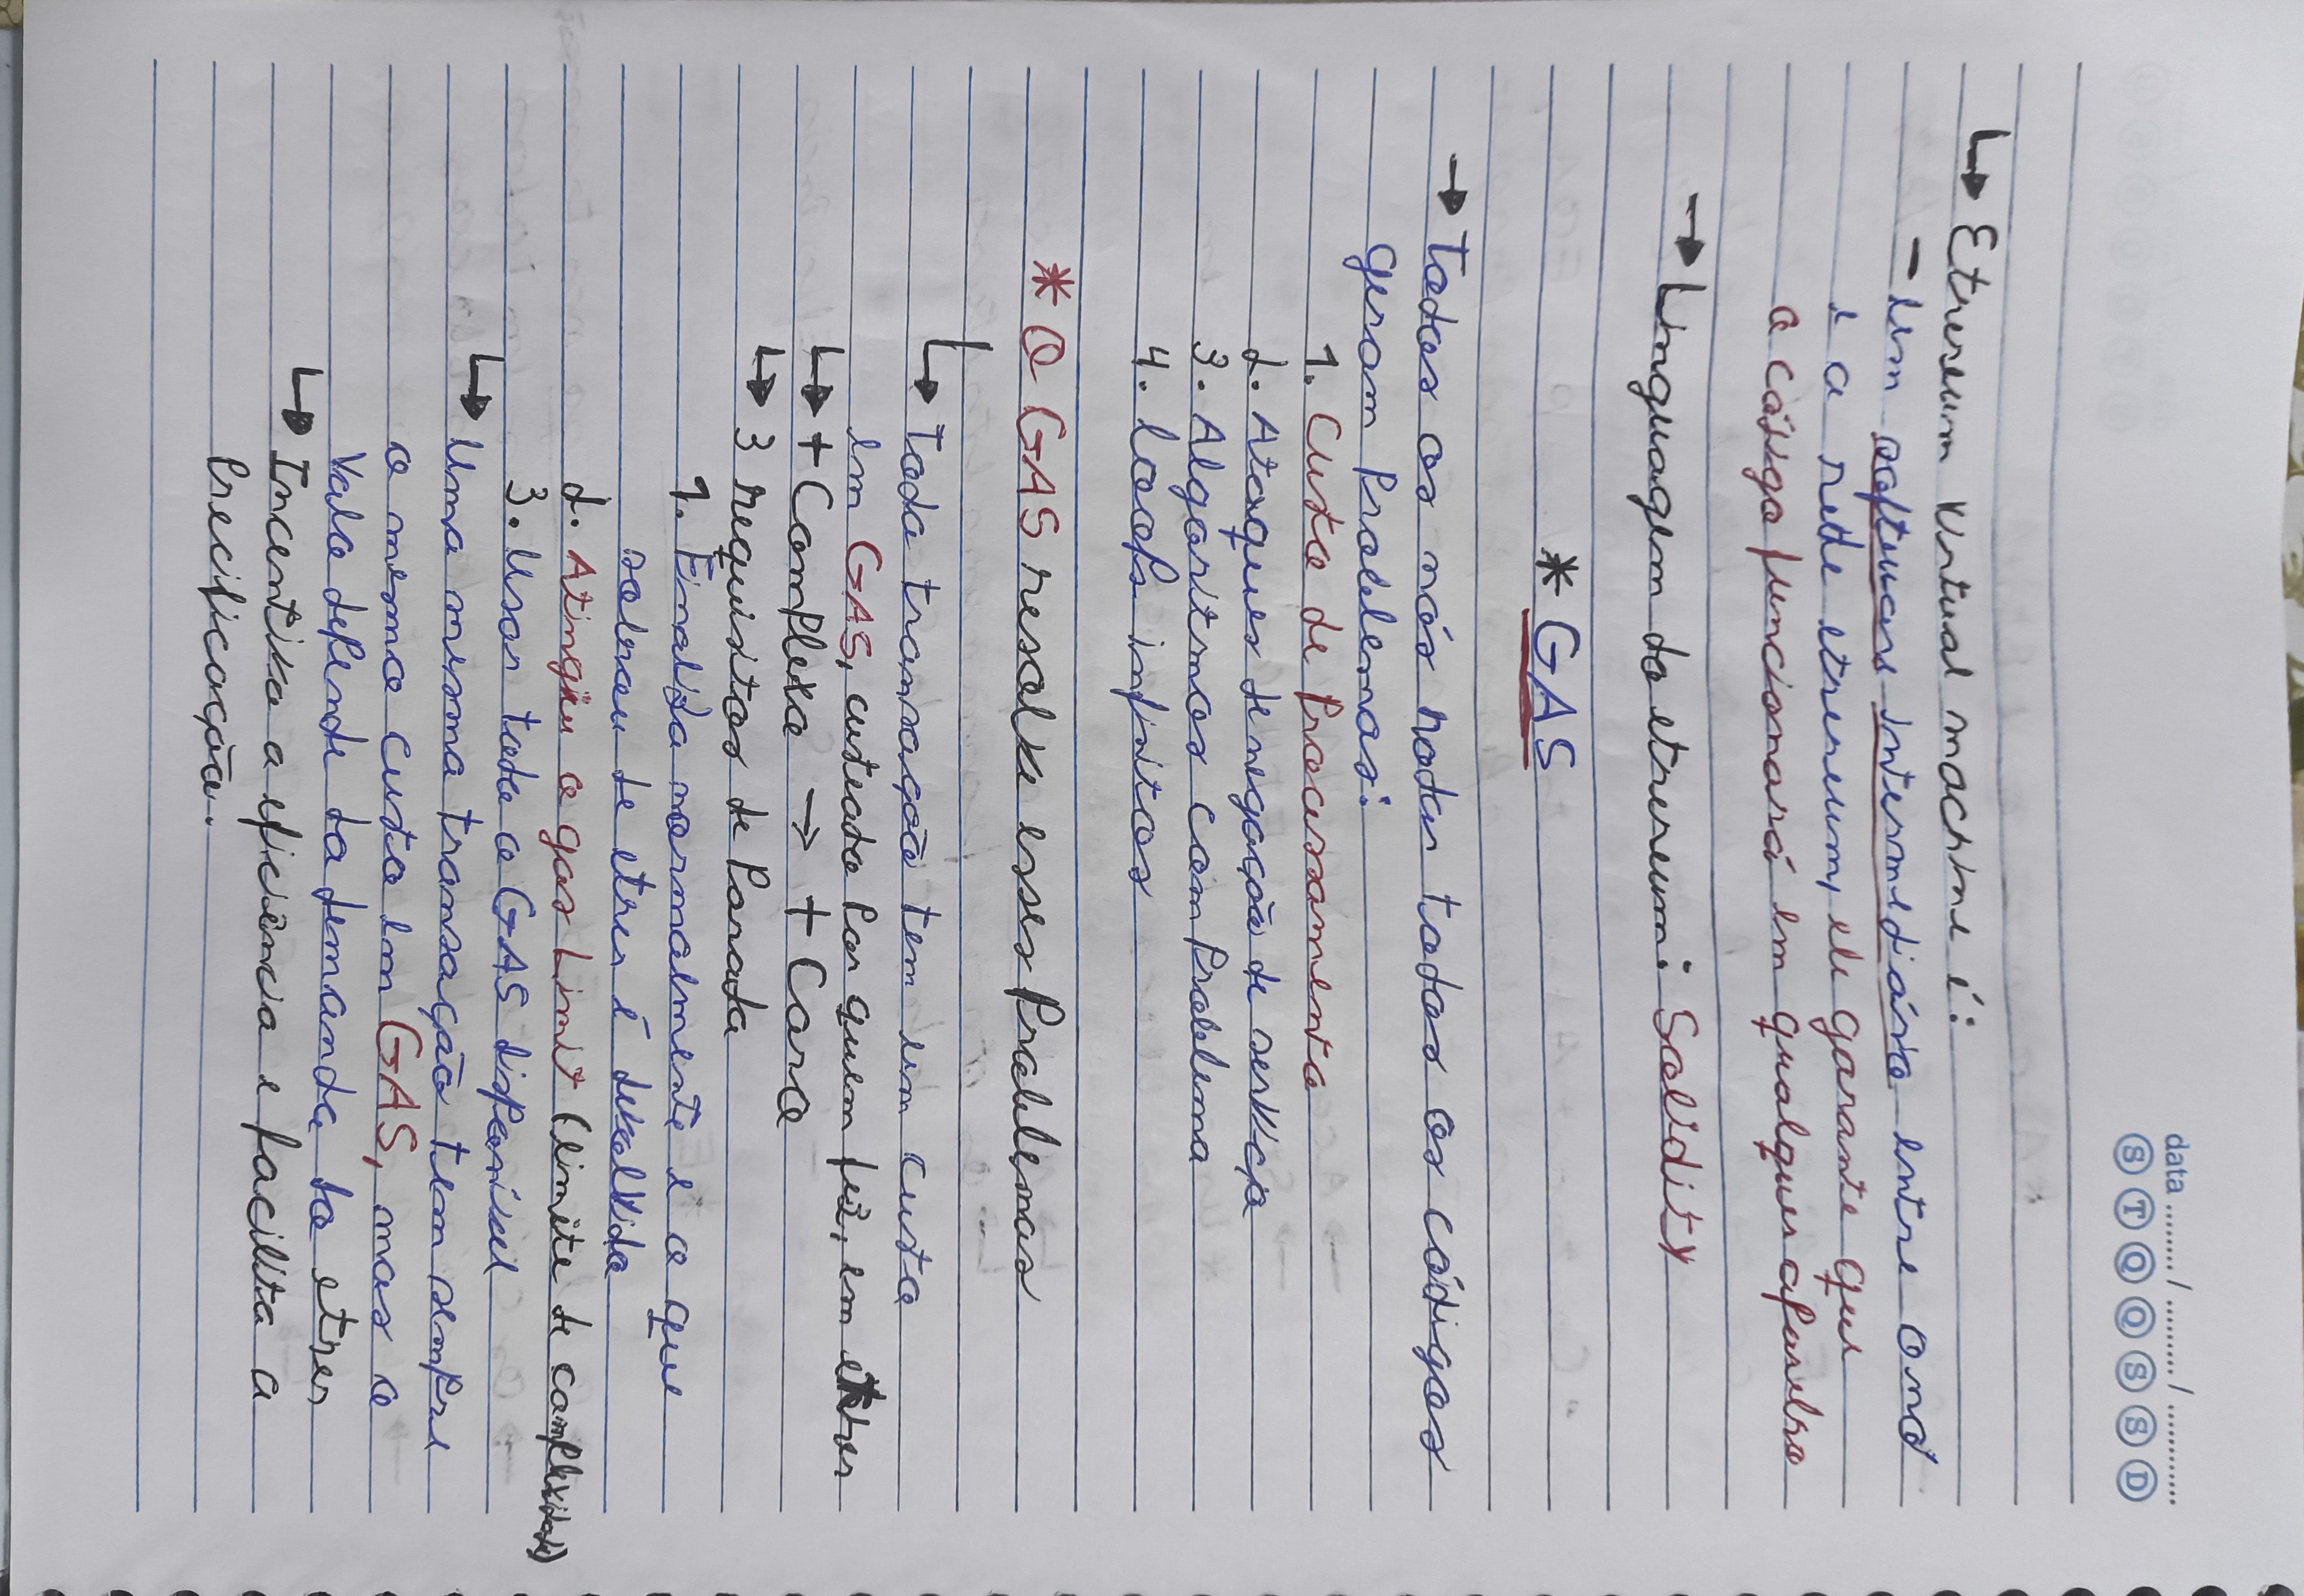 data ......../ ........./ ............
S T Q Q S S D
↳ Ethereum Virtual machine é:
- Um software intermediário entre o nó
e a rede ethereum, ele garante que
o código funcionará em qualquer aparelho
→ Linguagem do ethereum: Solidity
* GAS
→ Todos os nós rodar todos os códigos
geram Problemas:
1. Custo de Processamento
2. Ataques de negação de serviço
3. Algoritmos com Problema
4. loops infinitos
* O GAS resolve esses Problemas
↳ Toda transação tem um custo
em GAS, custeado Por quem fez, em ether
↳ + Complexo → + Caro
↳ 3 requisitos de Parada
1. Finaliza normalmente e o que
sobrou de ether é devolvido
2. Atingiu o gas Limit (limite de complexidade)
3. Usar todo o GAS disponível
↳ Uma mesma transação tem sempre
o mesmo custo em GAS, mas o
Valo depende da demanda do ether
↳ Incentiva a eficiência e facilita a
Precificação.